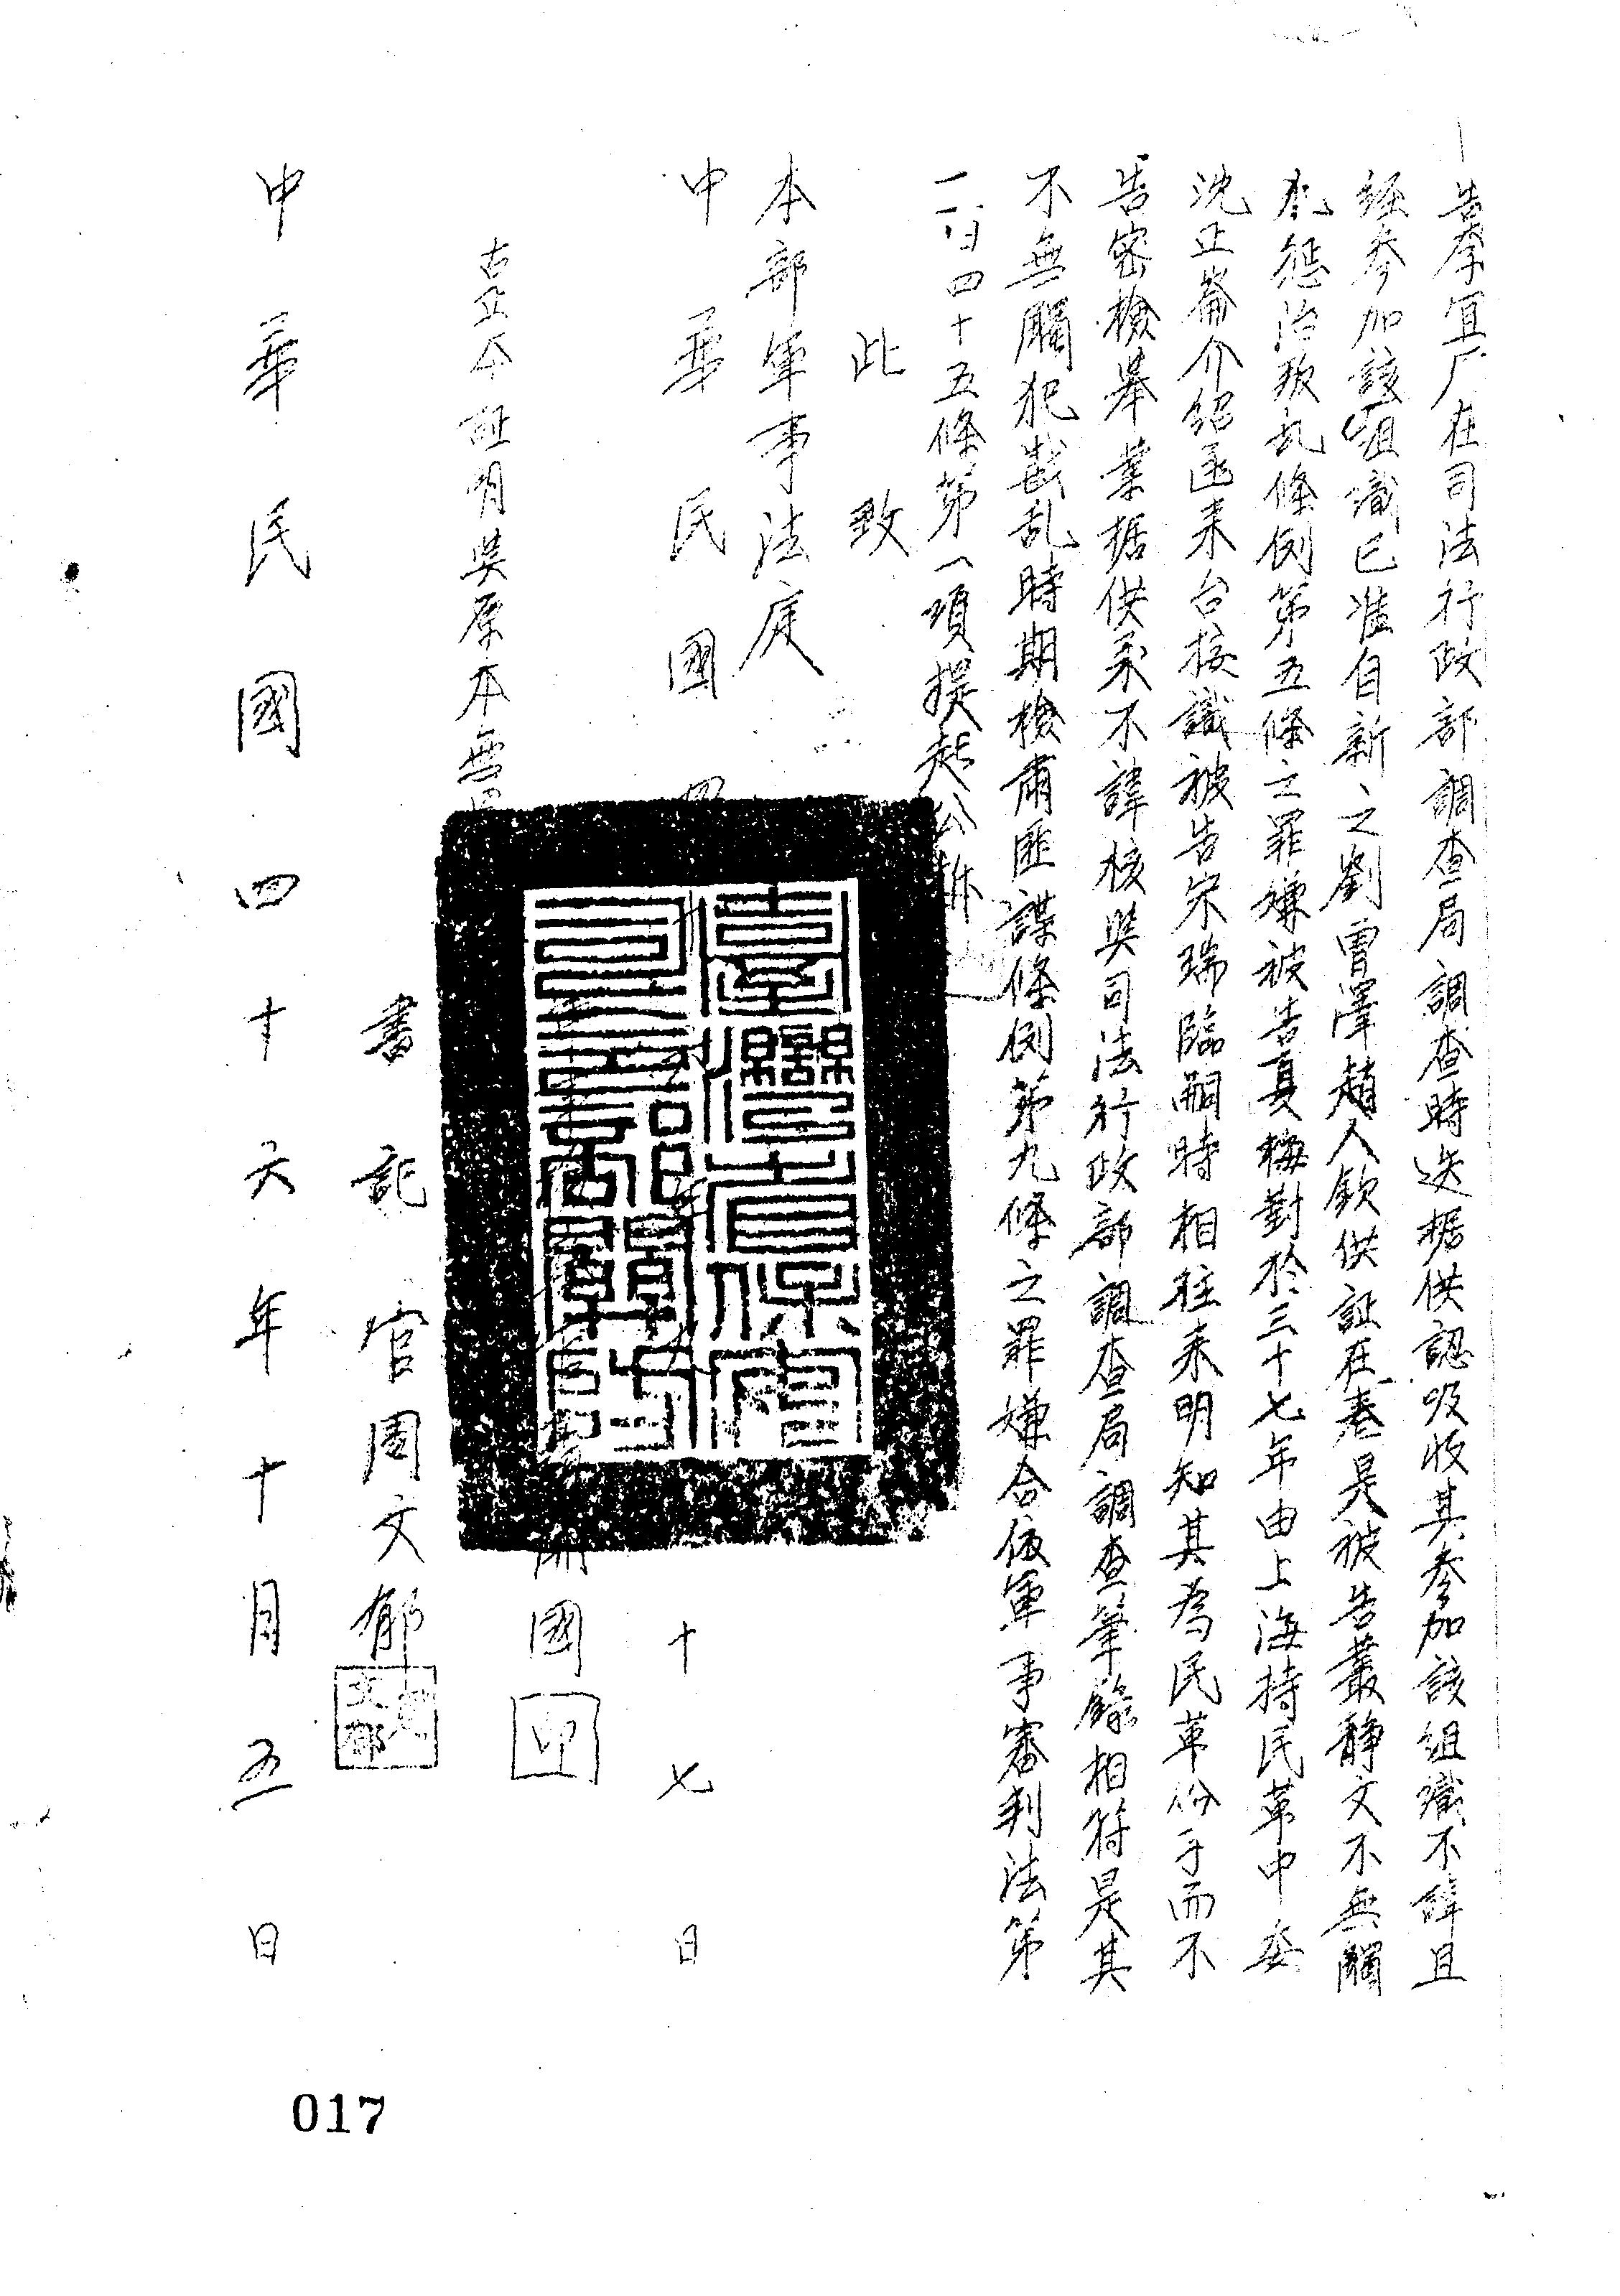 告李宜厂在司法行政部調查局調查時迭据供認吸收其參加該組織不諱且
經參加該咀識已准自新之劉曹澤趙人欽供証在卷是被告叢靜文不無觸
犯懲治叛乱條例第五條之罪嫌被告夏梅對於三十七年由上海持民革中委
沈正崙介紹函来台接識被告宋瑞臨嗣時相往来明知其為民革份子而不
告密檢舉業据供承不諱核與司法行政部調查局調查筆錄相符是其
不無觸犯戡乱時期檢肅匪諜條例第九條之罪嫌合依軍事審判法第
一百四十五條第一項提起公訴
此致
本部軍事法庭
中華民國四 十七日
國 印
右正本証明與原本無異
書記官周文郁
中華民國四十六年十月五日
017